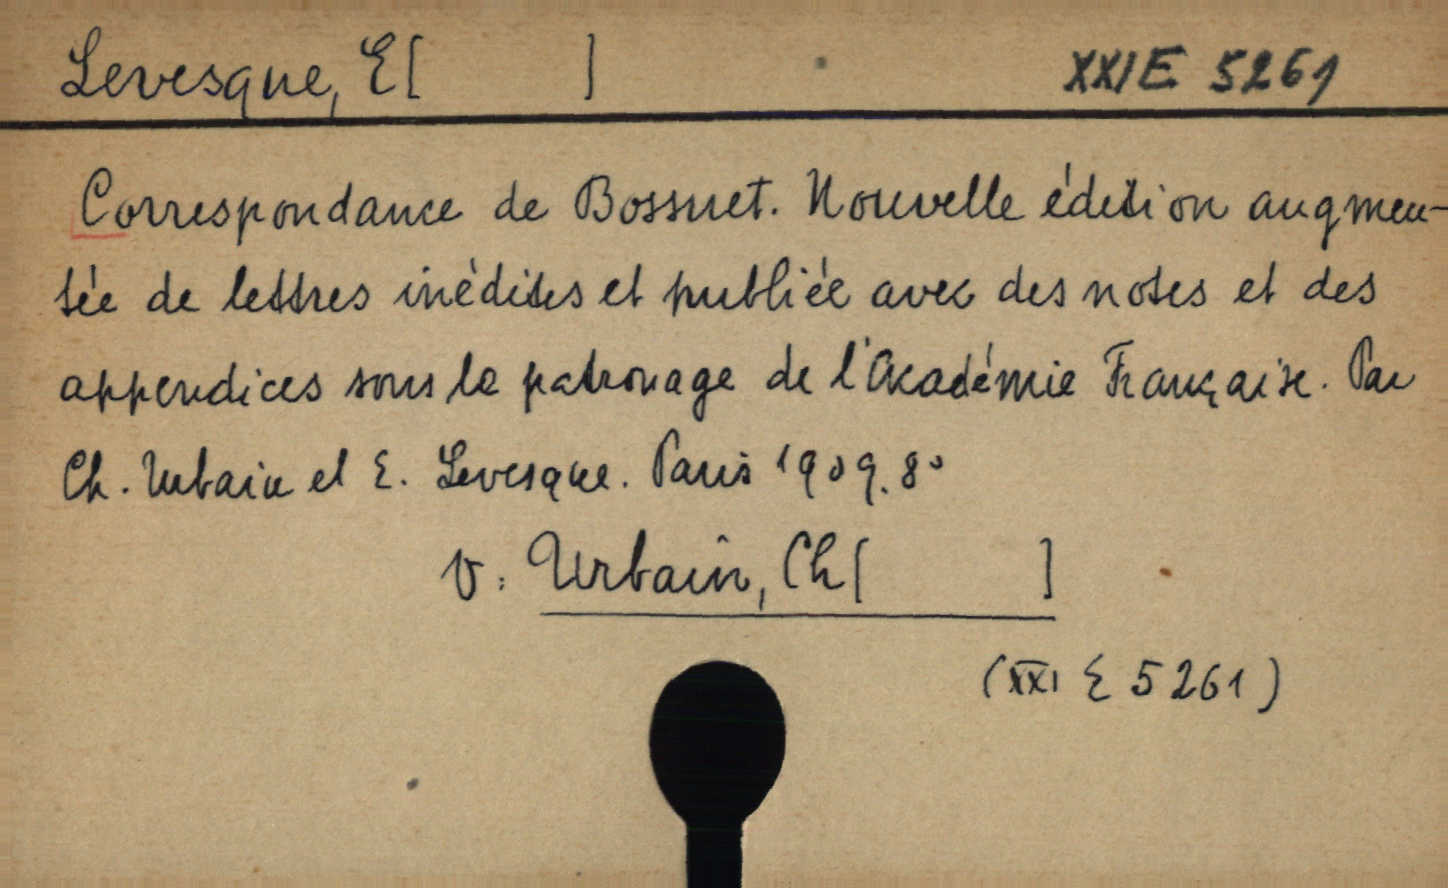 Levesque, E[ ] XXI E 5261
Correspondance de Bossuet. Nouvelle édition augmen-
tée de lettres inédites et publiée avec des notes et des
appendices sous le patronage de l'Académie Française. Par
Ch. Urbain et E. Levesque. Paris 1909. 8°
v: Urbain, Ch[ ]
(XXI E 5261)